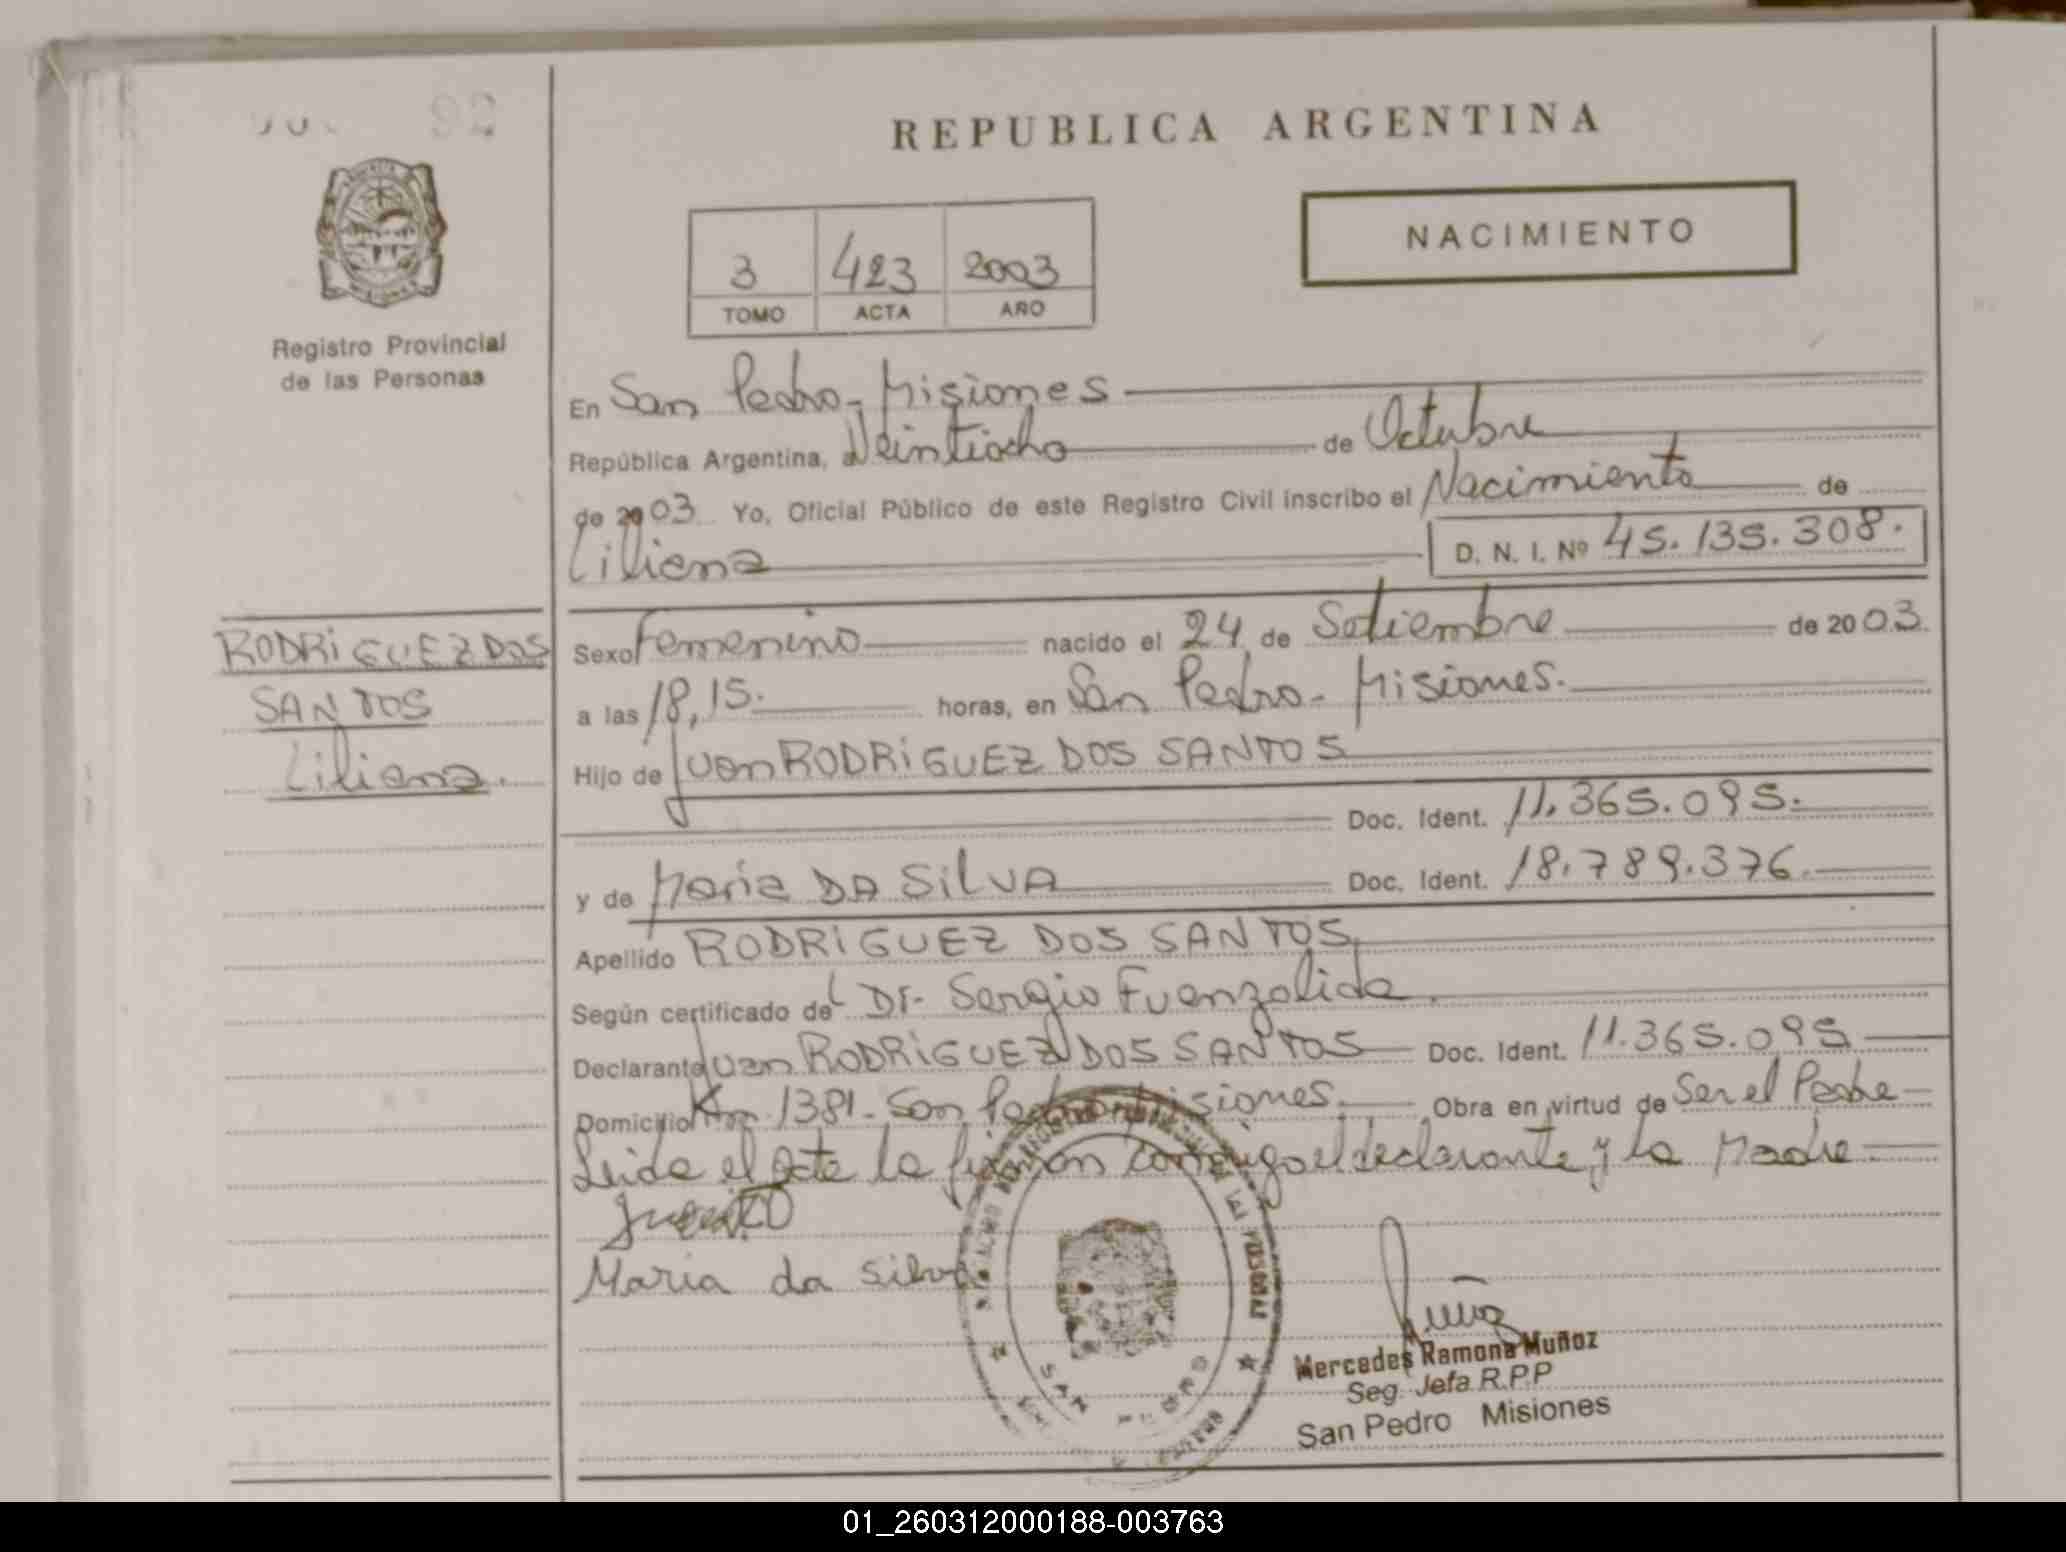 92
REPUBLICA ARGENTINA
NACIMIENTO
3 423 2003
TOMO ACTA AÑO
Registro Provincial
de las Personas
En San Pedro - Misiones
República Argentina, a Veintiocho de Octubre
de 2003 Yo, Oficial Público de este Registro Civil inscribo el Nacimiento de
Liliana D. N. I. Nº 45.135.308.
RODRIGUEZ DOS
SANTOS
Liliana.
Sexo Femenino nacido el 24 de Setiembre de 2003.
a las 18,15. horas, en San Pedro - Misiones.
Hijo de Juan RODRIGUEZ DOS SANTOS
Doc. Ident. 11.365.095.
y de Maria DA SILVA Doc. Ident. 18.789.376.
Apellido RODRIGUEZ DOS SANTOS
Según certificado del Dr. Sergio Fuenzalida.
Declarante Juan RODRIGUEZ DOS SANTOS Doc. Ident. 11.365.095
Domicilio Km 1381 - San Pedro Misiones. Obra en virtud de Ser el Padre
Leida el Acta la firman conmigo el declarante y la Madre
Maria da Silva
SAN PEDRO
Mercedes Ramona Muñoz
Seg. Jefa R.P.P
San Pedro Misiones
01_260312000188-003763